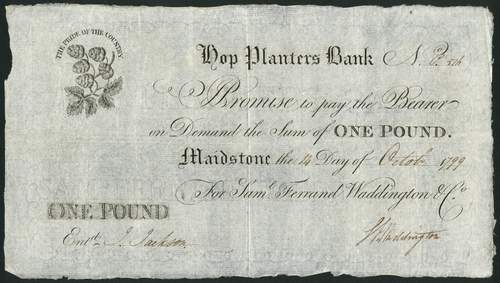 THE PRIDE OF THE COUNTRY
Hop Planters Bank No. 516
Promise to pay the Bearer
on Demand the Sum of ONE POUND.
Maidstone the 24 Day of Octobr 1799
For Saml. Ferrand Waddington & Co.
ONE POUND
Entd. J. Jackson
SFWaddington